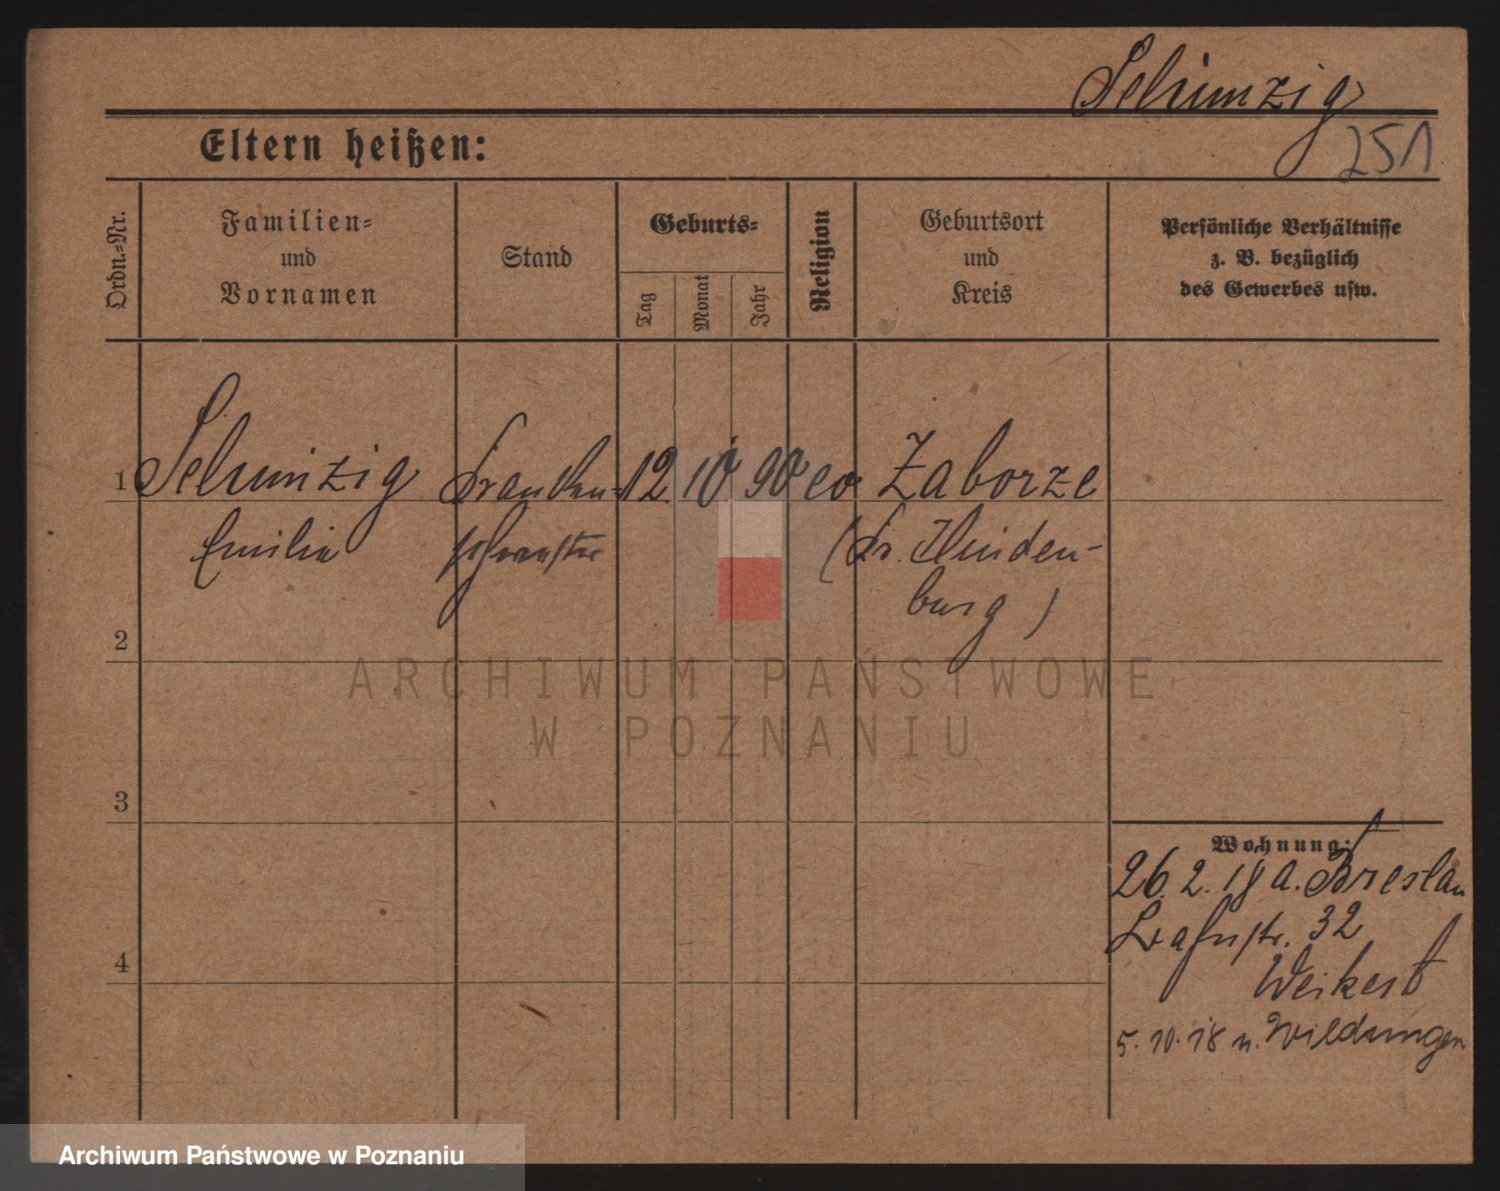 Schimzig
251
Eltern heißen:
Ordn.-Nr.
Familien-
und
Vornamen
Stand
Geburts-
Tag
Monat
Jahr
Religion
Geburtsort
und
Kreis
Persönliche Verhältnisse
z. B. bezüglich
des Gewerbes usw.
1
Schimzig Kranken- 12 10 90 ev Zaborze
Emilie schwester (Kr. Hinden-
burg)
2
ARCHIWUM PAŃSTWOWE
W POZNANIU
3
Wohnung:
26. 2. 18 a. Breslau
32
4
Weikert
5. 10. 18 n. Wildungen
Archiwum Państwowe w Poznaniu